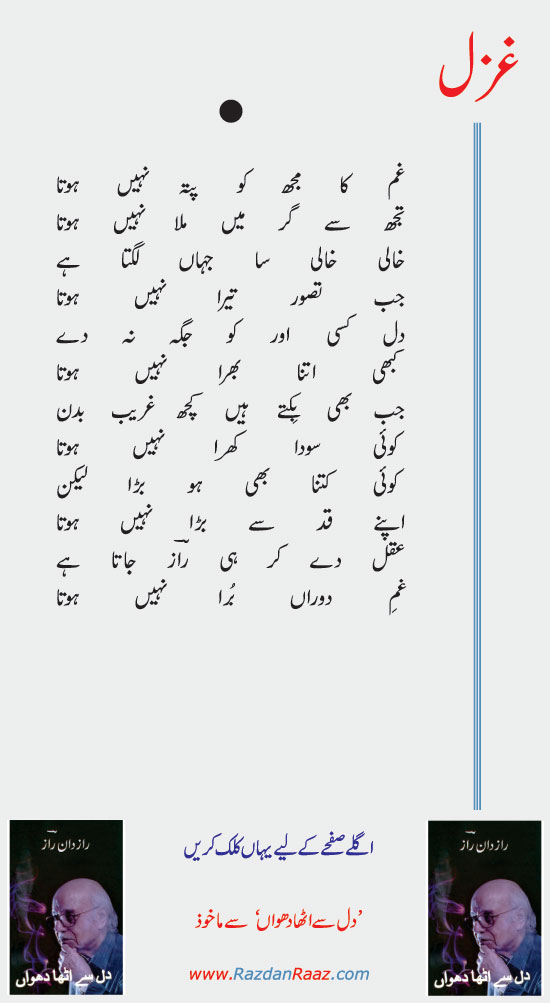 غزل
غم کا مجھ کو پتہ نہیں ہوتا
تجھ سے گر میں ملا نہیں ہوتا
خالی خالی سا جہاں لگتا ہے
جب تصور تیرا نہیں ہوتا
دل کسی اور کو جگہ نہ دے
کبھی اتنا بھرا نہیں ہوتا
جب بھی بِکتے ہیں کچھ غریب بدن
کوئی سودا کھرا نہیں ہوتا
کوئی کتنا بھی ہو بڑا لیکن
اپنے قد سے بڑا نہیں ہوتا
عقل دے کر ہی رازؔ جاتا ہے
غمِ دوراں بُرا نہیں ہوتا
رازدان رازؔ
دل سے اٹھا دھواں
اگلے صفحے کے لیے یہاں کلک کریں
’دل سے اٹھا دھواں‘ سے ماخوذ
www.RazdanRaaz.com
رازدان رازؔ
دل سے اٹھا دھواں